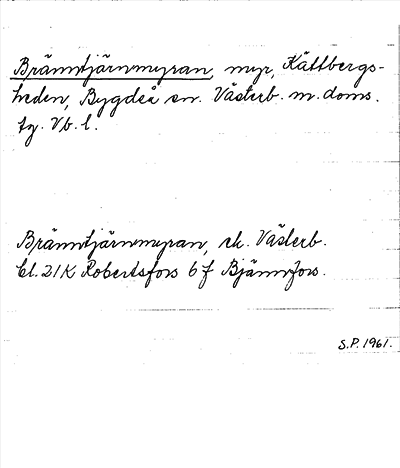 Bränntjärnmyran, myr, Kättbergs-
heden, Bygdeå sn. Västerb. m. doms.
tg. Vb. l.
Bränntjärnmyran, ek. Västerb.
bl. 21K Robertsfors 6 f Bjännfors.
S.P. 1961.